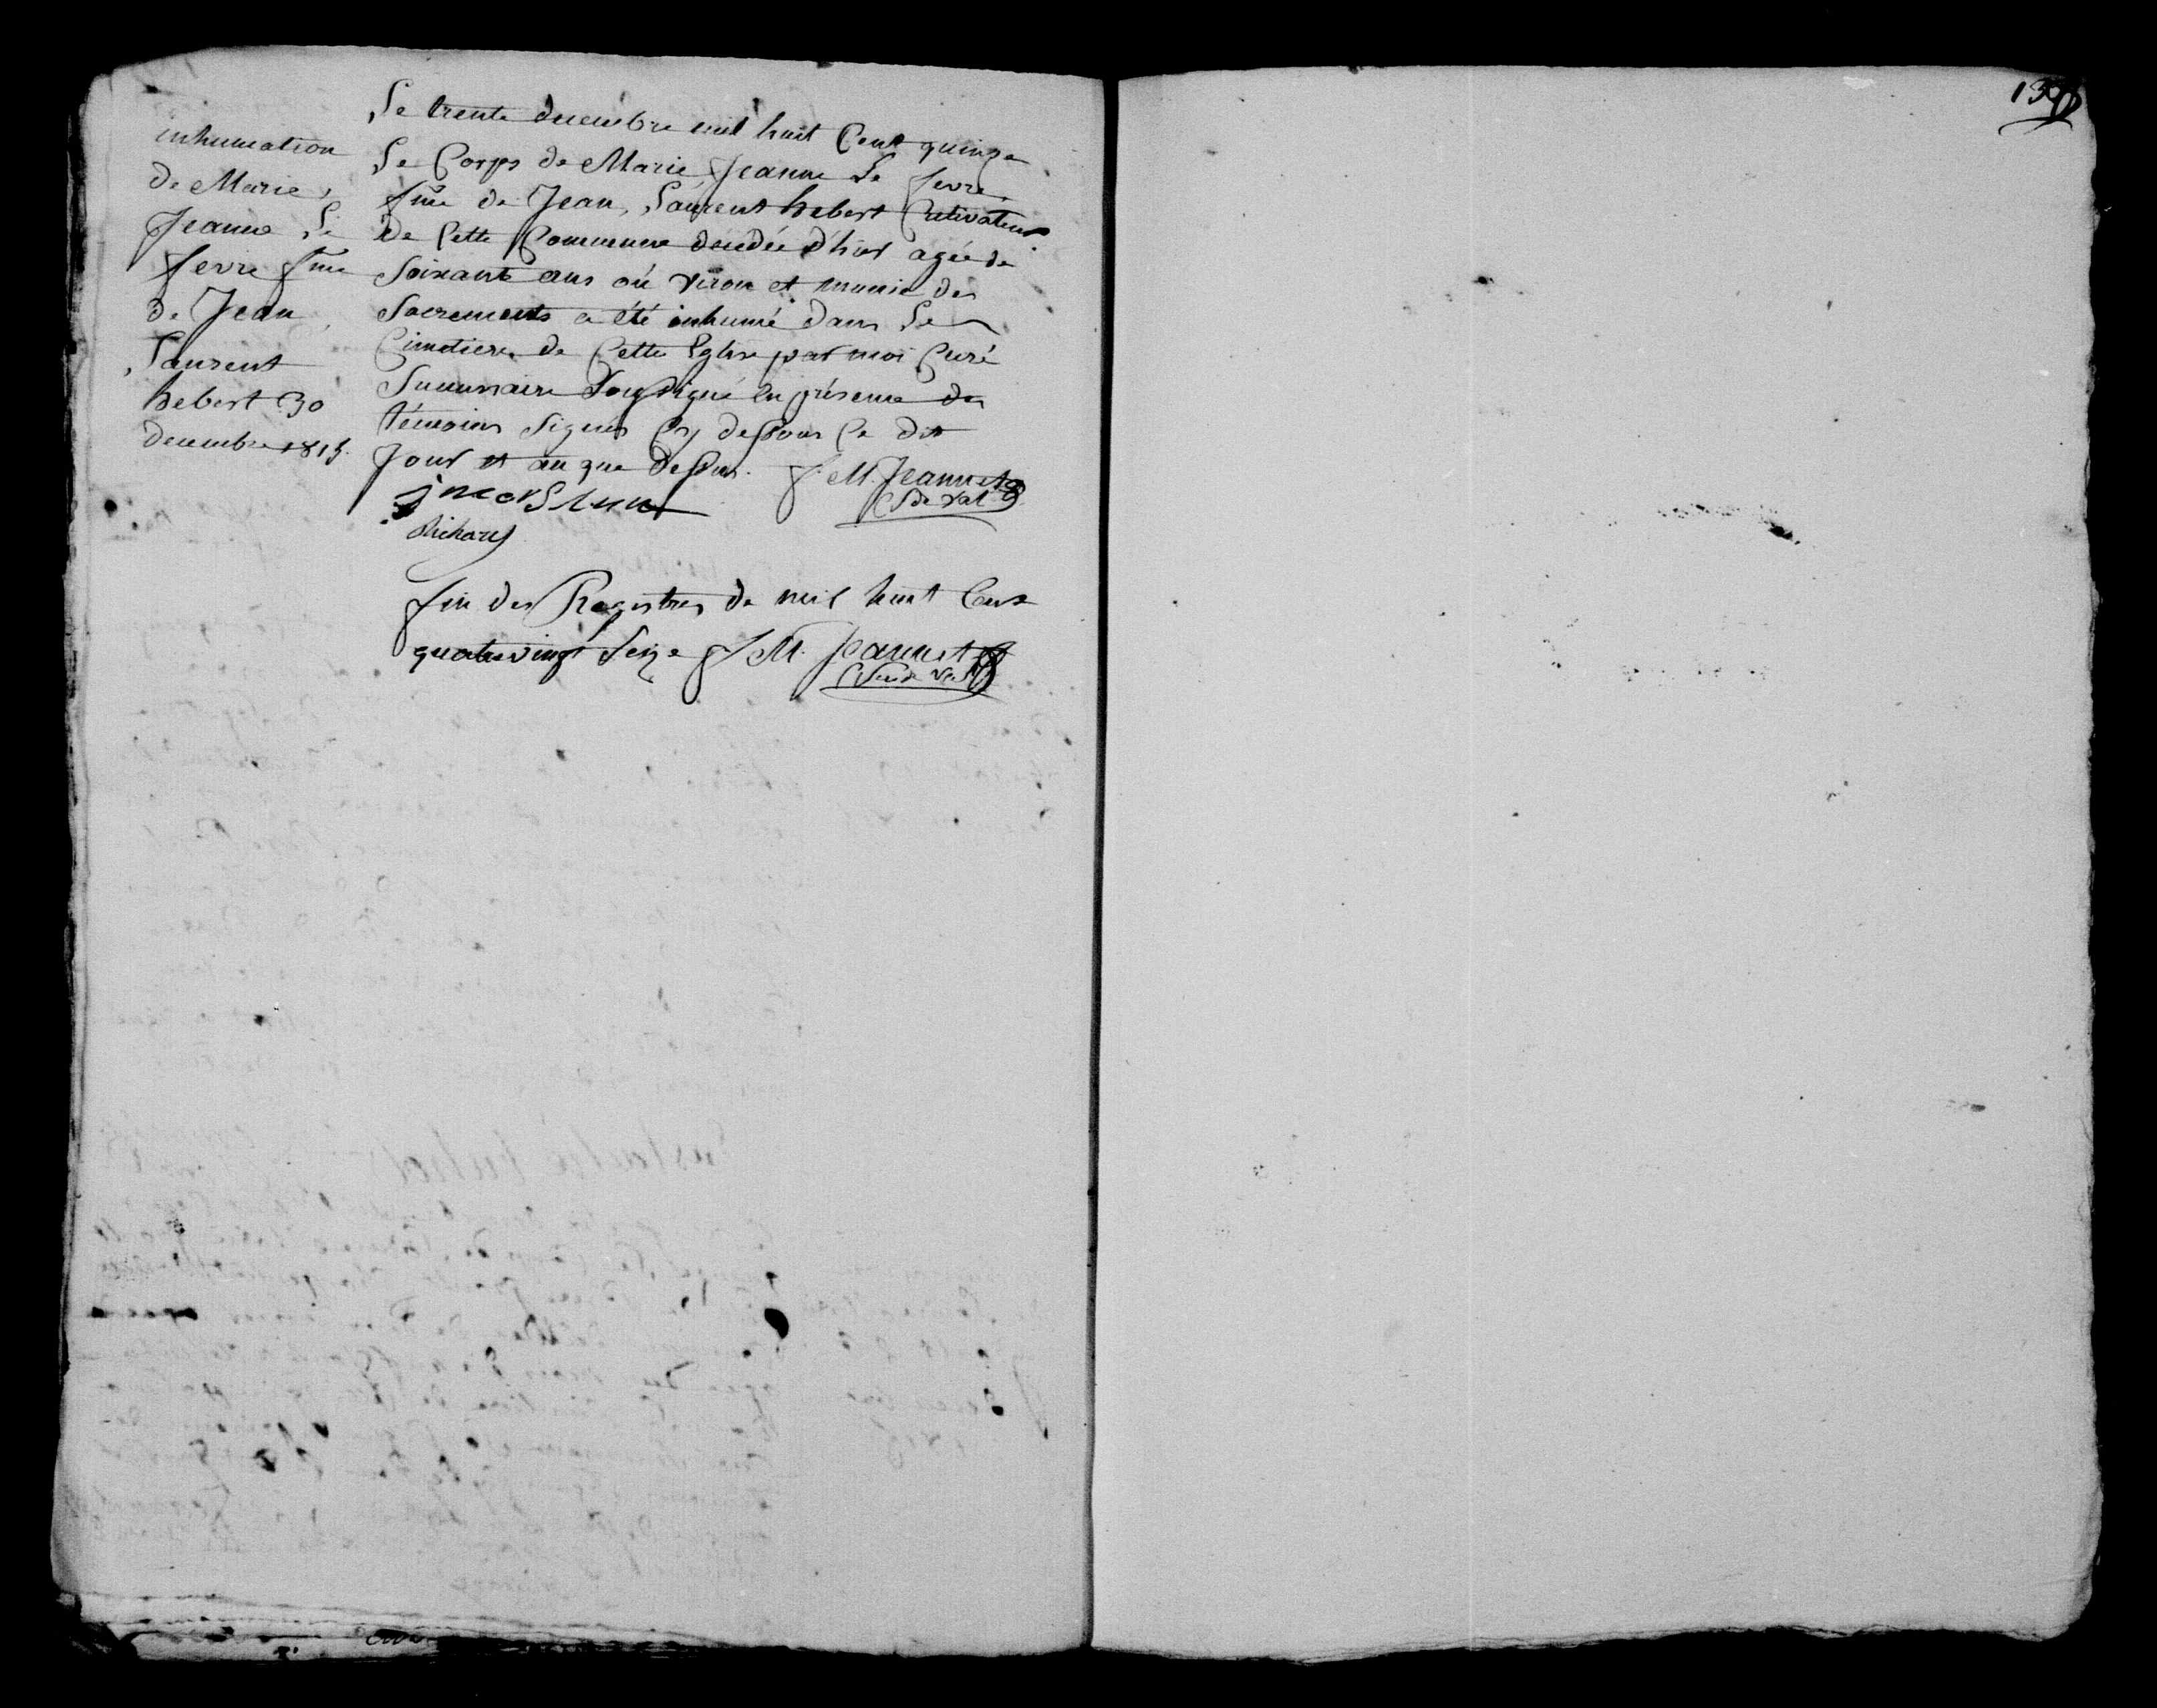 inhumation
de Marie
Jeanne Le
fevre fme
de Jean
Laurent
hebert 30
decembre 1815.
Le trente decembre mil huit Cent quinze
Le Corps de Marie Jeanne Le fevre
fme de Jean, Laurent hebert Cultivateur
de Cette Commune décédée d'hier agée de
Soixante ans où viron et munie des
Sacrements a été inhumé dans Le
Cimetiere de Cette Eglise par moi Curé
Soussigné en présence des
témoins Signés Cy dessous Ce dit
Jour et an que dessus. f. M. Jeannet
C de Vat
Richard
fin des Registres de mil huit Cent
quatrevingt Seize f M. Jeannet